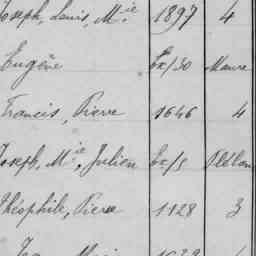 Joseph, Louis, M.ie 1897 4
Eugène Ex/30 Maure
Francis, Pierre 1646 4
Joseph, M.ie, Julien Ex/5 Plélan
Théophile, Pierre 1128 3